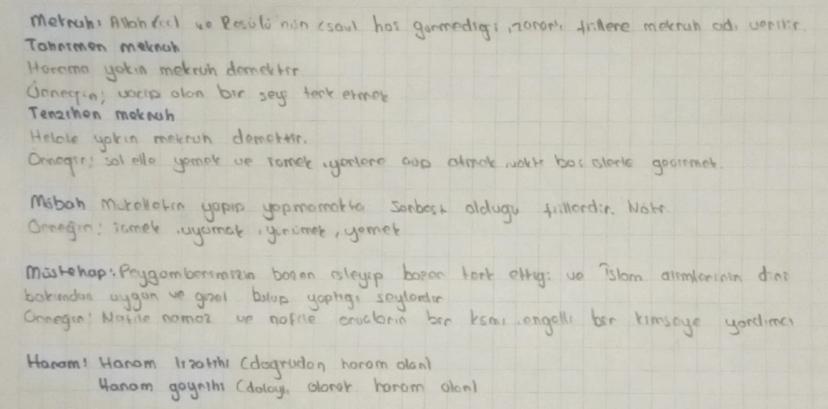 Mekruh: Allah (c.c) ve Resülü'nün (s.a.v) hoş görmediği, zararlı fiillere mekruh adı verilir.
Tahrimen mekruh
Harama yakın mekruh demektir
Örneğin; vacip olan bir şeyi terk etmek
Tenzihen mekruh
Helale yakın mekruh demektir.
Örneğin: sol elle yemek ve içmek, yerlere çöp atmak, vakti boş olarla geçirmek.
Mübah: Mükellefin yapıp yapmamakta serbest olduğu fiillerdir.
Örneğin: içmek, uyumak, yürümek, yemek
Müstehap: Peygamberimizin bazen işleyip bazen terk ettiği ve İslam alimlerinin dini
bakımdan uygun ve güzel bulup yaptığı şeylerdir
Örneğin: Nafile namaz ve nafile oruçların bir kısmı, engelli bir kimseye yardımcı
Haram: Haram lizatihi (doğrudan haram olan)
Haram gayrihi (dolaylı olarak haram olan)